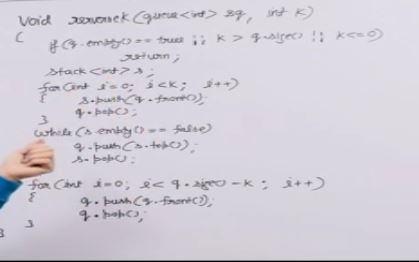 Void reversek (queue<int> &q, int k)
{ if (q.empty() == true || k > q.size() || k<=0)
return;
stack<int> s;
for (int i=0; i<k; i++)
{ s.push(q.front());
q.pop();
}
while (s.empty() == false)
q.push(s.top());
s.pop();
for (int i=0; i< q.size()-k; i++)
{ q.push(q.front());
q.pop();
}
}